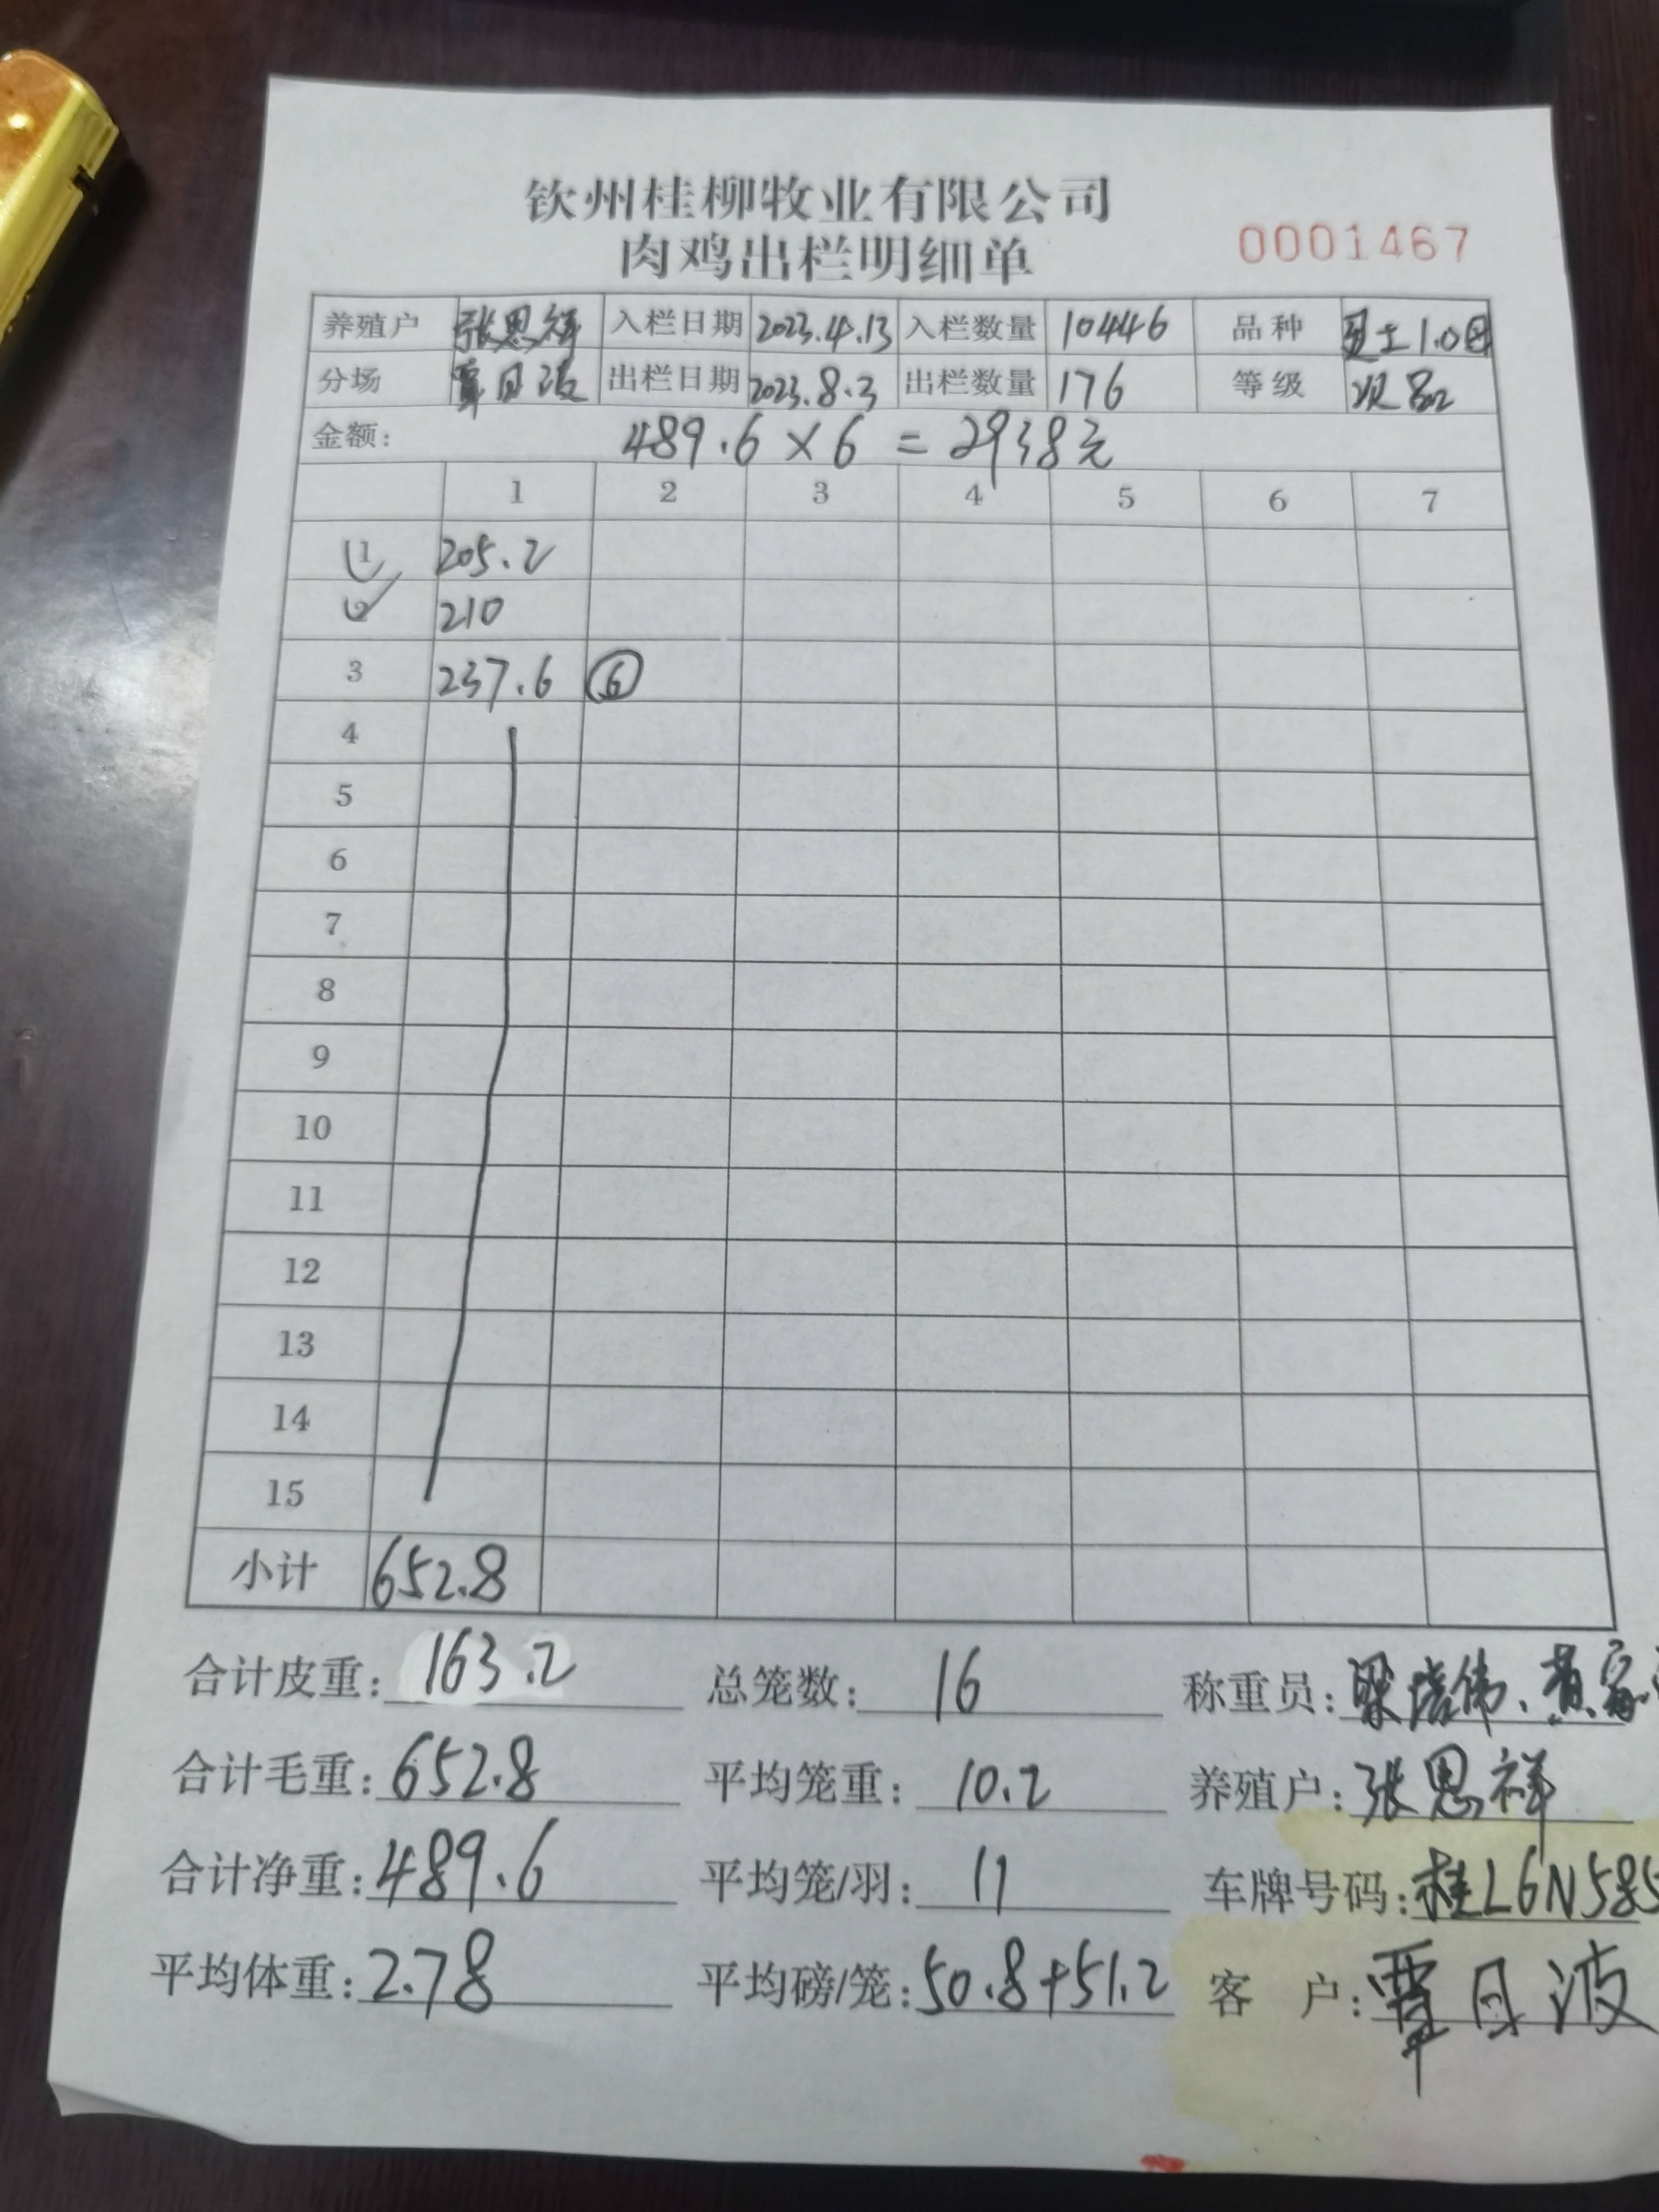 钦州桂柳牧业有限公司
肉鸡出栏明细单
0001467
养殖户 张恩祥 入栏日期 2023.4.13 入栏数量 10446 品种 土1.0
分场 覃月波 出栏日期 2023.8.3 出栏数量 176 等级 次品
金额: 489.6×6=2938元
1 2 3 4 5 6 7
1 205.2
2 210
3 237.6 ⑥
4
5
6
7
8
9
10
11
12
13
14
15
小计 652.8
合计皮重: 163.2 总笼数: 16 称重员: 梁 伟、黄家
合计毛重: 652.8 平均笼重: 10.2 养殖户: 张恩祥
合计净重: 489.6 平均笼/羽: 11 车牌号码: 桂L6N585
平均体重: 2.78 平均磅/笼: 50.8+51.2 客 户: 覃月波